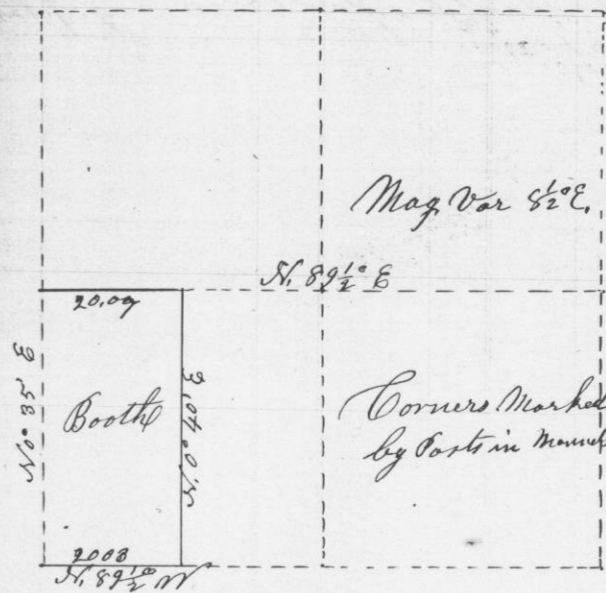 Mag Var 8½° E.
N. 89½° E
20.09
N 0° 35' E
Booth
N. 0° 40' E
Corners Marked
by Posts in
2003
N. 89½° W